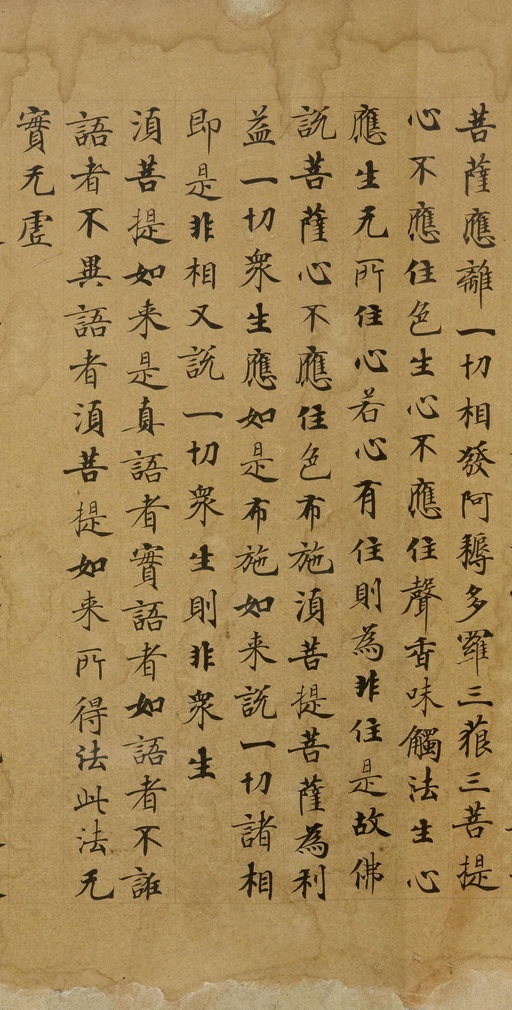 菩薩應離一切相發阿耨多羅三藐三菩提
心不應住色生心不應住聲香味觸法生心
應生无所住心若心有住則為非住是故佛
說菩薩心不應住色布施湏菩提菩薩為利
益一切衆生應如是布施如来說一切諸相
即是非相又說一切衆生則非衆生
湏菩提如来是真語者實語者如語者不誑
語者不異語者湏菩提如来所得法此法无
實无虛